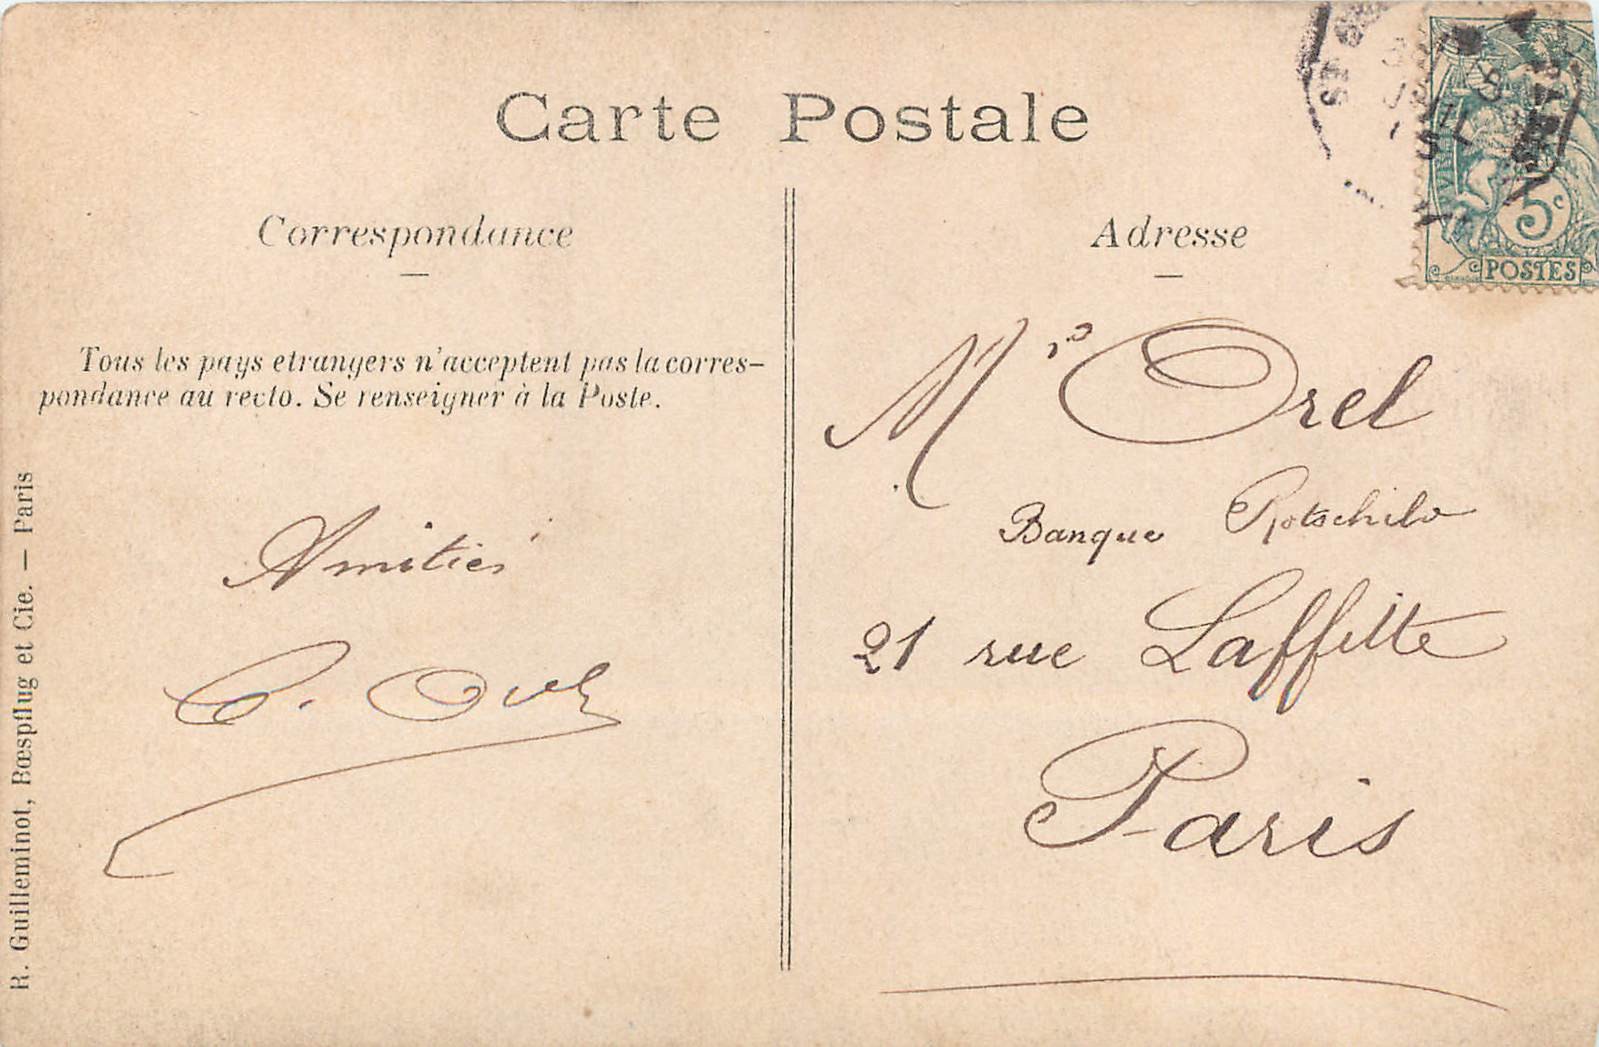 Carte Postale
Correspondance
Adresse
Tous les pays etrangers n'acceptent pas la corres-
pondance au recto. Se renseigner à la Poste.
R. Guilleminot, Bœspflug et Cie. — Paris
Amitiés
Mr Orel
Banque Rotschild
21 rue Laffitte
Paris
5c
POSTES